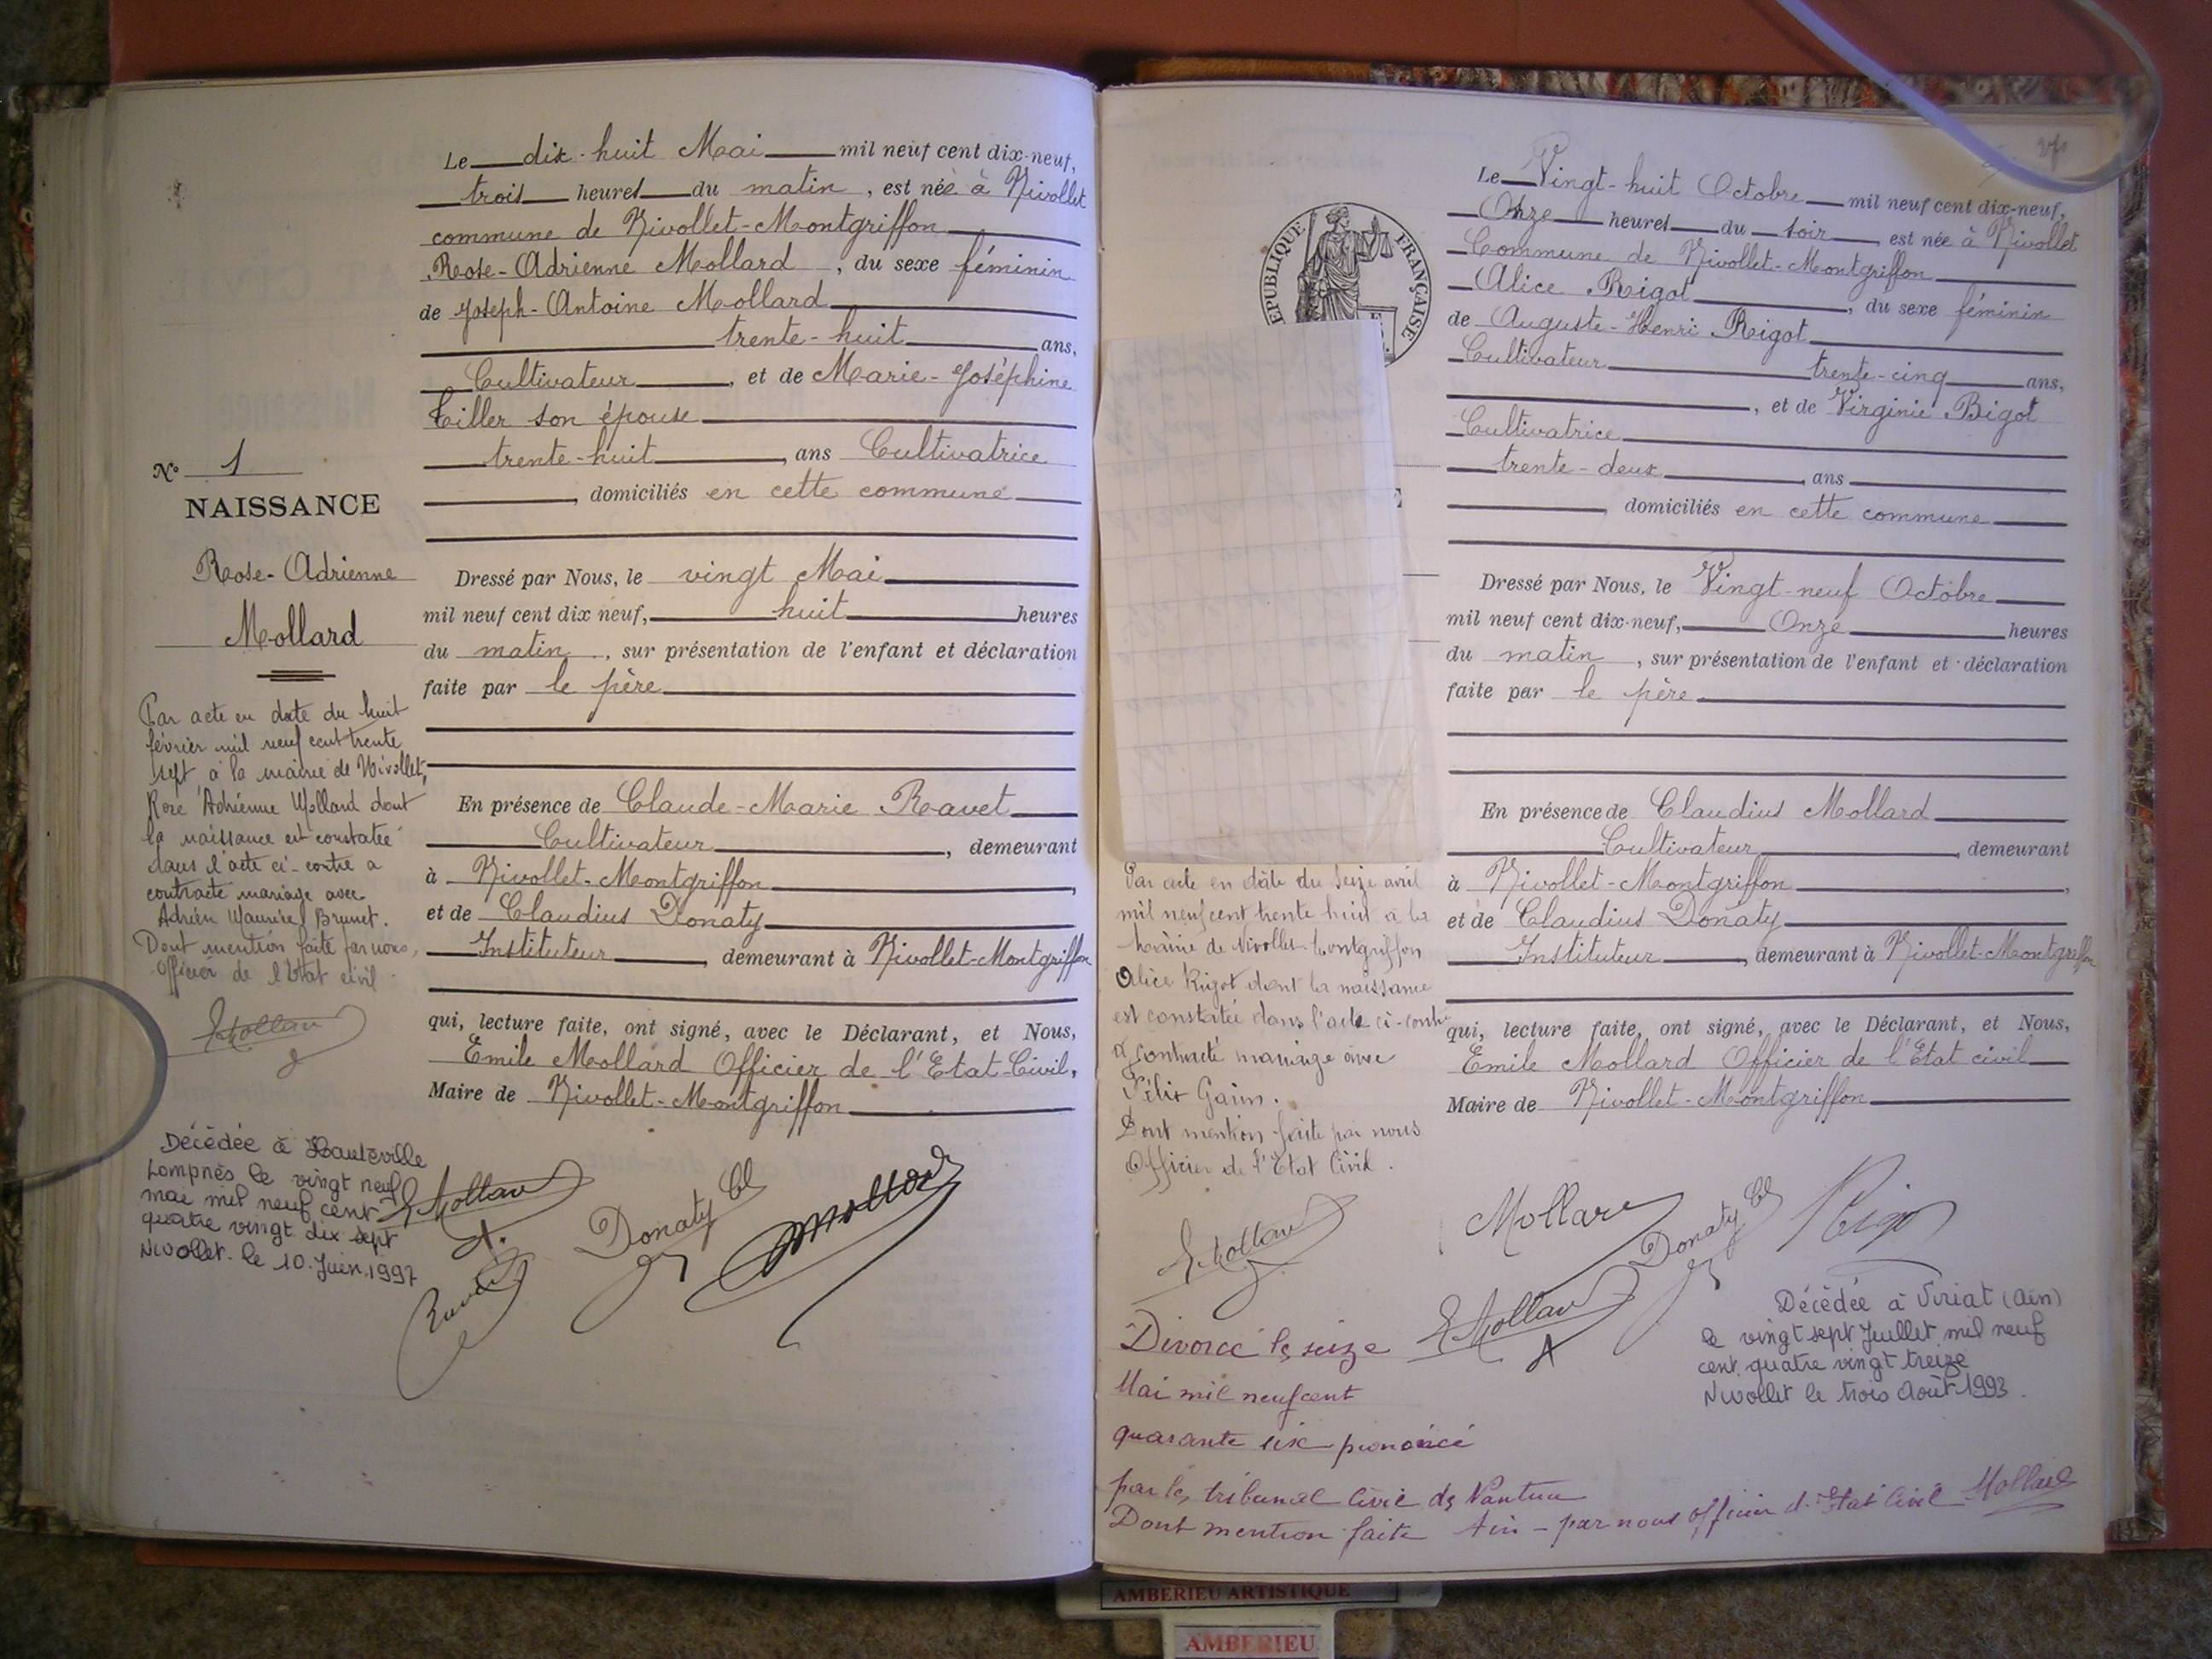 Le dix-huit Mai mil neuf cent dix-neuf,
trois heures du matin, est née à Nivollet
commune de Nivollet-Montgriffon
Rose-Adrienne Mollard, du sexe féminin
de Joseph-Antoine Mollard
trente-huit ans,
Cultivateur, et de Marie-Joséphine
Tiller son épouse
trente-huit, ans Cultivatrice
, domiciliés en cette commune
N° 1
NAISSANCE
Rose-Adrienne
Mollard
Dressé par Nous, le vingt Mai
mil neuf cent dix neuf, huit heures
du matin, sur présentation de l'enfant et déclaration
faite par le père
En présence de Claude-Marie Ravet
Cultivateur, demeurant
à Nivollet-Montgriffon,
et de Claudius Donaty
Instituteur, demeurant à Nivollet-Montgriffon
qui, lecture faite, ont signé, avec le Déclarant, et Nous,
Emile Mollard Officier de l'Etat-Civil,
Maire de Nivollet-Montgriffon
Par acte en date du huit
février mil neuf cent trente
sept à la mairie de Nivollet,
Rose Adrienne Mollard dont
la naissance est constatée
dans l'acte ci-contre a
contracté mariage avec
Adrien Maurice Brunet.
Dont mention faite par nous,
Officier de l'Etat civil
EMollard
Décédée à Hauteville
Lompnés le vingt neuf
mai mil neuf cent
quatre vingt dix sept
Nivollet. le 10. Juin. 1997
EMollard
Ravet
Donaty Cl
Mollard
27
Le Vingt-huit Octobre mil neuf cent dix-neuf,
Onze heures du soir, est née à Nivollet
Commune de Nivollet-Montgriffon
Alice Rigot, du sexe féminin
de Auguste-Henri Rigot
Cultivateur trente-cinq ans,
, et de Virginie Bigot
Cultivatrice
trente-deux, ans
, domiciliés en cette commune
REPUBLIQUE FRANÇAISE
Dressé par Nous, le Vingt-neuf Octobre
mil neuf cent dix-neuf, Onze heures
du matin, sur présentation de l'enfant et déclaration
faite par le père
En présence de Claudius Mollard
Cultivateur, demeurant
à Nivollet-Montgriffon,
et de Claudius Donaty
Instituteur, demeurant à Nivollet-Montgriffon
qui, lecture faite, ont signé, avec le Déclarant, et Nous,
Emile Mollard Officier de l'Etat civil
Maire de Nivollet-Montgriffon
Par acte en date du seize avril
mil neuf cent trente huit à la
Mairie de Nivollet-Montgriffon
Alice Rigot dont la naissance
est constatée dans l'acte ci-contre
a contracté mariage avec
Félix Garin.
Dont mention faite par nous
Officier de l'Etat Civil.
EMollard
Mollard
Donaty Cl
Rigot
EMollard
Décédée à Viriat (Ain)
le vingt sept Juillet mil neuf
cent quatre vingt treize
Nivollet le trois Août 1993.
Divorcé le seize
Mai mil neuf cent
quarante six prononcé
par le tribunal Civil de Nantua
Dont mention faite Ain - par nous officier d'Etat Civil Mollard
AMBERIEU ARTISTIQUE
AMBERIEU